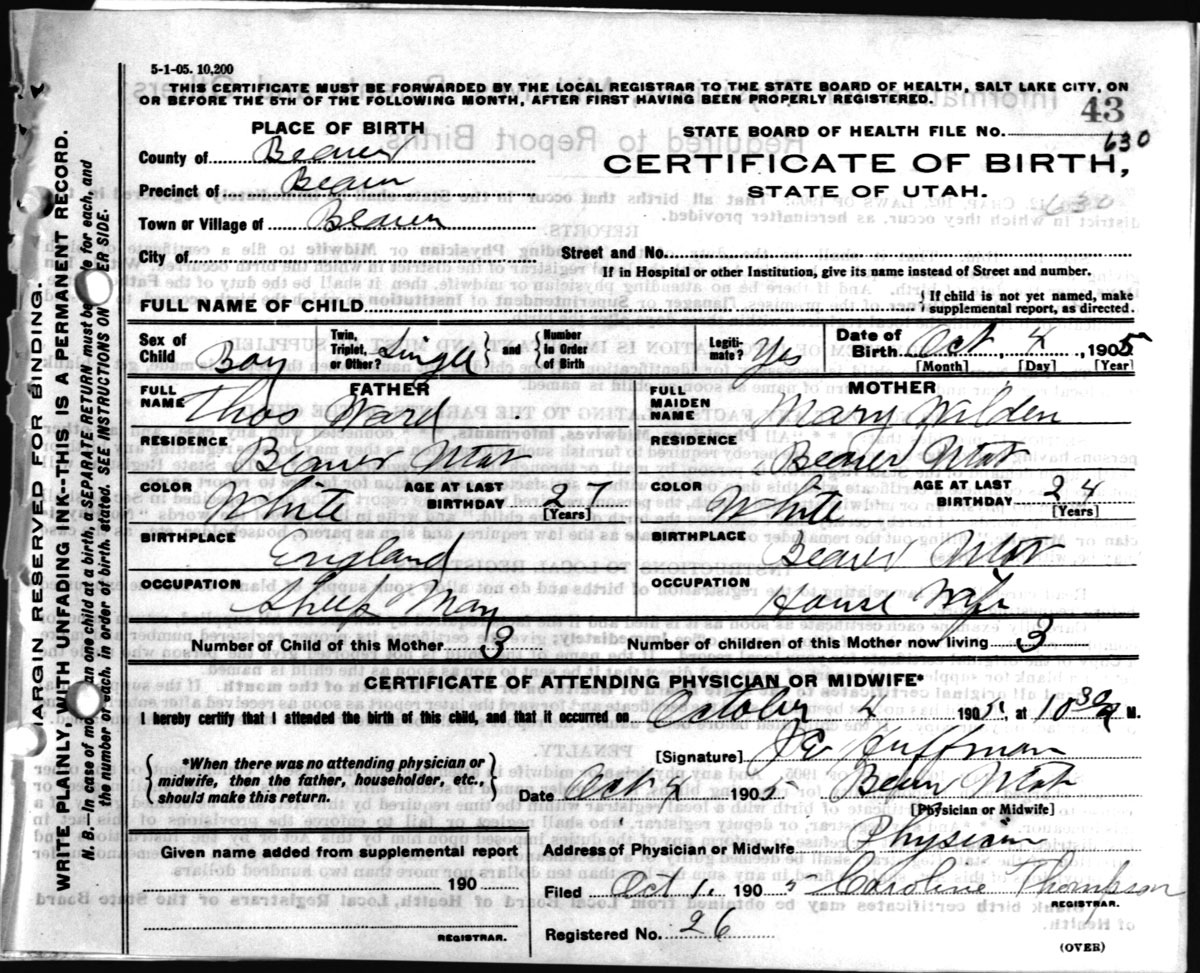 5-1-05. 10,200
THIS CERTIFICATE MUST BE FORWARDED BY THE LOCAL REGISTRAR TO THE STATE BOARD OF HEALTH, SALT LAKE CITY, ON
OR BEFORE THE 5TH OF THE FOLLOWING MONTH, AFTER FIRST HAVING BEEN PROPERLY REGISTERED.
43
PLACE OF BIRTH
STATE BOARD OF HEALTH FILE No. 630
County of Beaver
CERTIFICATE OF BIRTH,
Precinct of Beaver
STATE OF UTAH.
630
Town or Village of Beaver
City of
Street and No.
If in Hospital or other Institution, give its name instead of Street and number.
FULL NAME OF CHILD
{ If child is not yet named, make
supplemental report, as directed.
Sex of Child Boy
Twin, Triplet, or Other? Single } and { Number in Order of Birth
Legiti-mate? Yes
Date of Birth Oct, 4, 1905
[Month] [Day] [Year]
FULL NAME FATHER
Thos Ward
FULL MAIDEN NAME MOTHER
Mary Wilden
RESIDENCE
Beaver Utah
RESIDENCE
Beaver Utah
COLOR White
AGE AT LAST BIRTHDAY 27
[Years]
COLOR White
AGE AT LAST BIRTHDAY 24
[Years]
BIRTHPLACE
England
BIRTHPLACE
Beaver Utah
OCCUPATION
Sheep Man
OCCUPATION
House Wife
Number of Child of this Mother 3
Number of children of this Mother now living 3
CERTIFICATE OF ATTENDING PHYSICIAN OR MIDWIFE*
I hereby certify that I attended the birth of this child, and that it occurred on October 4 1905, at 10 30 M.
{ *When there was no attending physician or
midwife, then the father, householder, etc.,
should make this return. }
[Signature] Huffman
Date Oct 1905 Beaver Utah
[Physician or Midwife]
Given name added from supplemental report
Address of Physician or Midwife Physician
190
Filed Oct 1, 1905 Caroline Thompson
REGISTRAR.
REGISTRAR.
Registered No. 26
(OVER)
MARGIN RESERVED FOR BINDING.
WRITE PLAINLY, WITH UNFADING INK--THIS IS A PERMANENT RECORD.
N. B.—In case of mo an one child at a birth, a SEPARATE RETURN must be made for each, and
the number of each, in order of birth, stated. SEE INSTRUCTIONS ON ER SIDE.